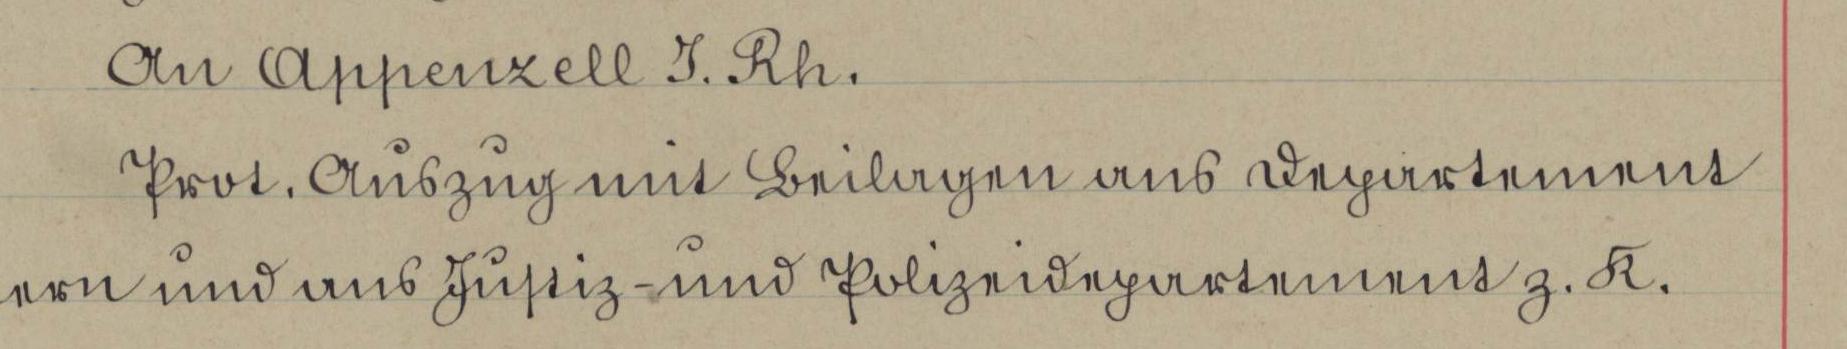 An Appenzell I. Rh.
Prot. Auszug mit Beilagen ans Departement
ern und ans Justiz- und Polizeidepartement z. K.